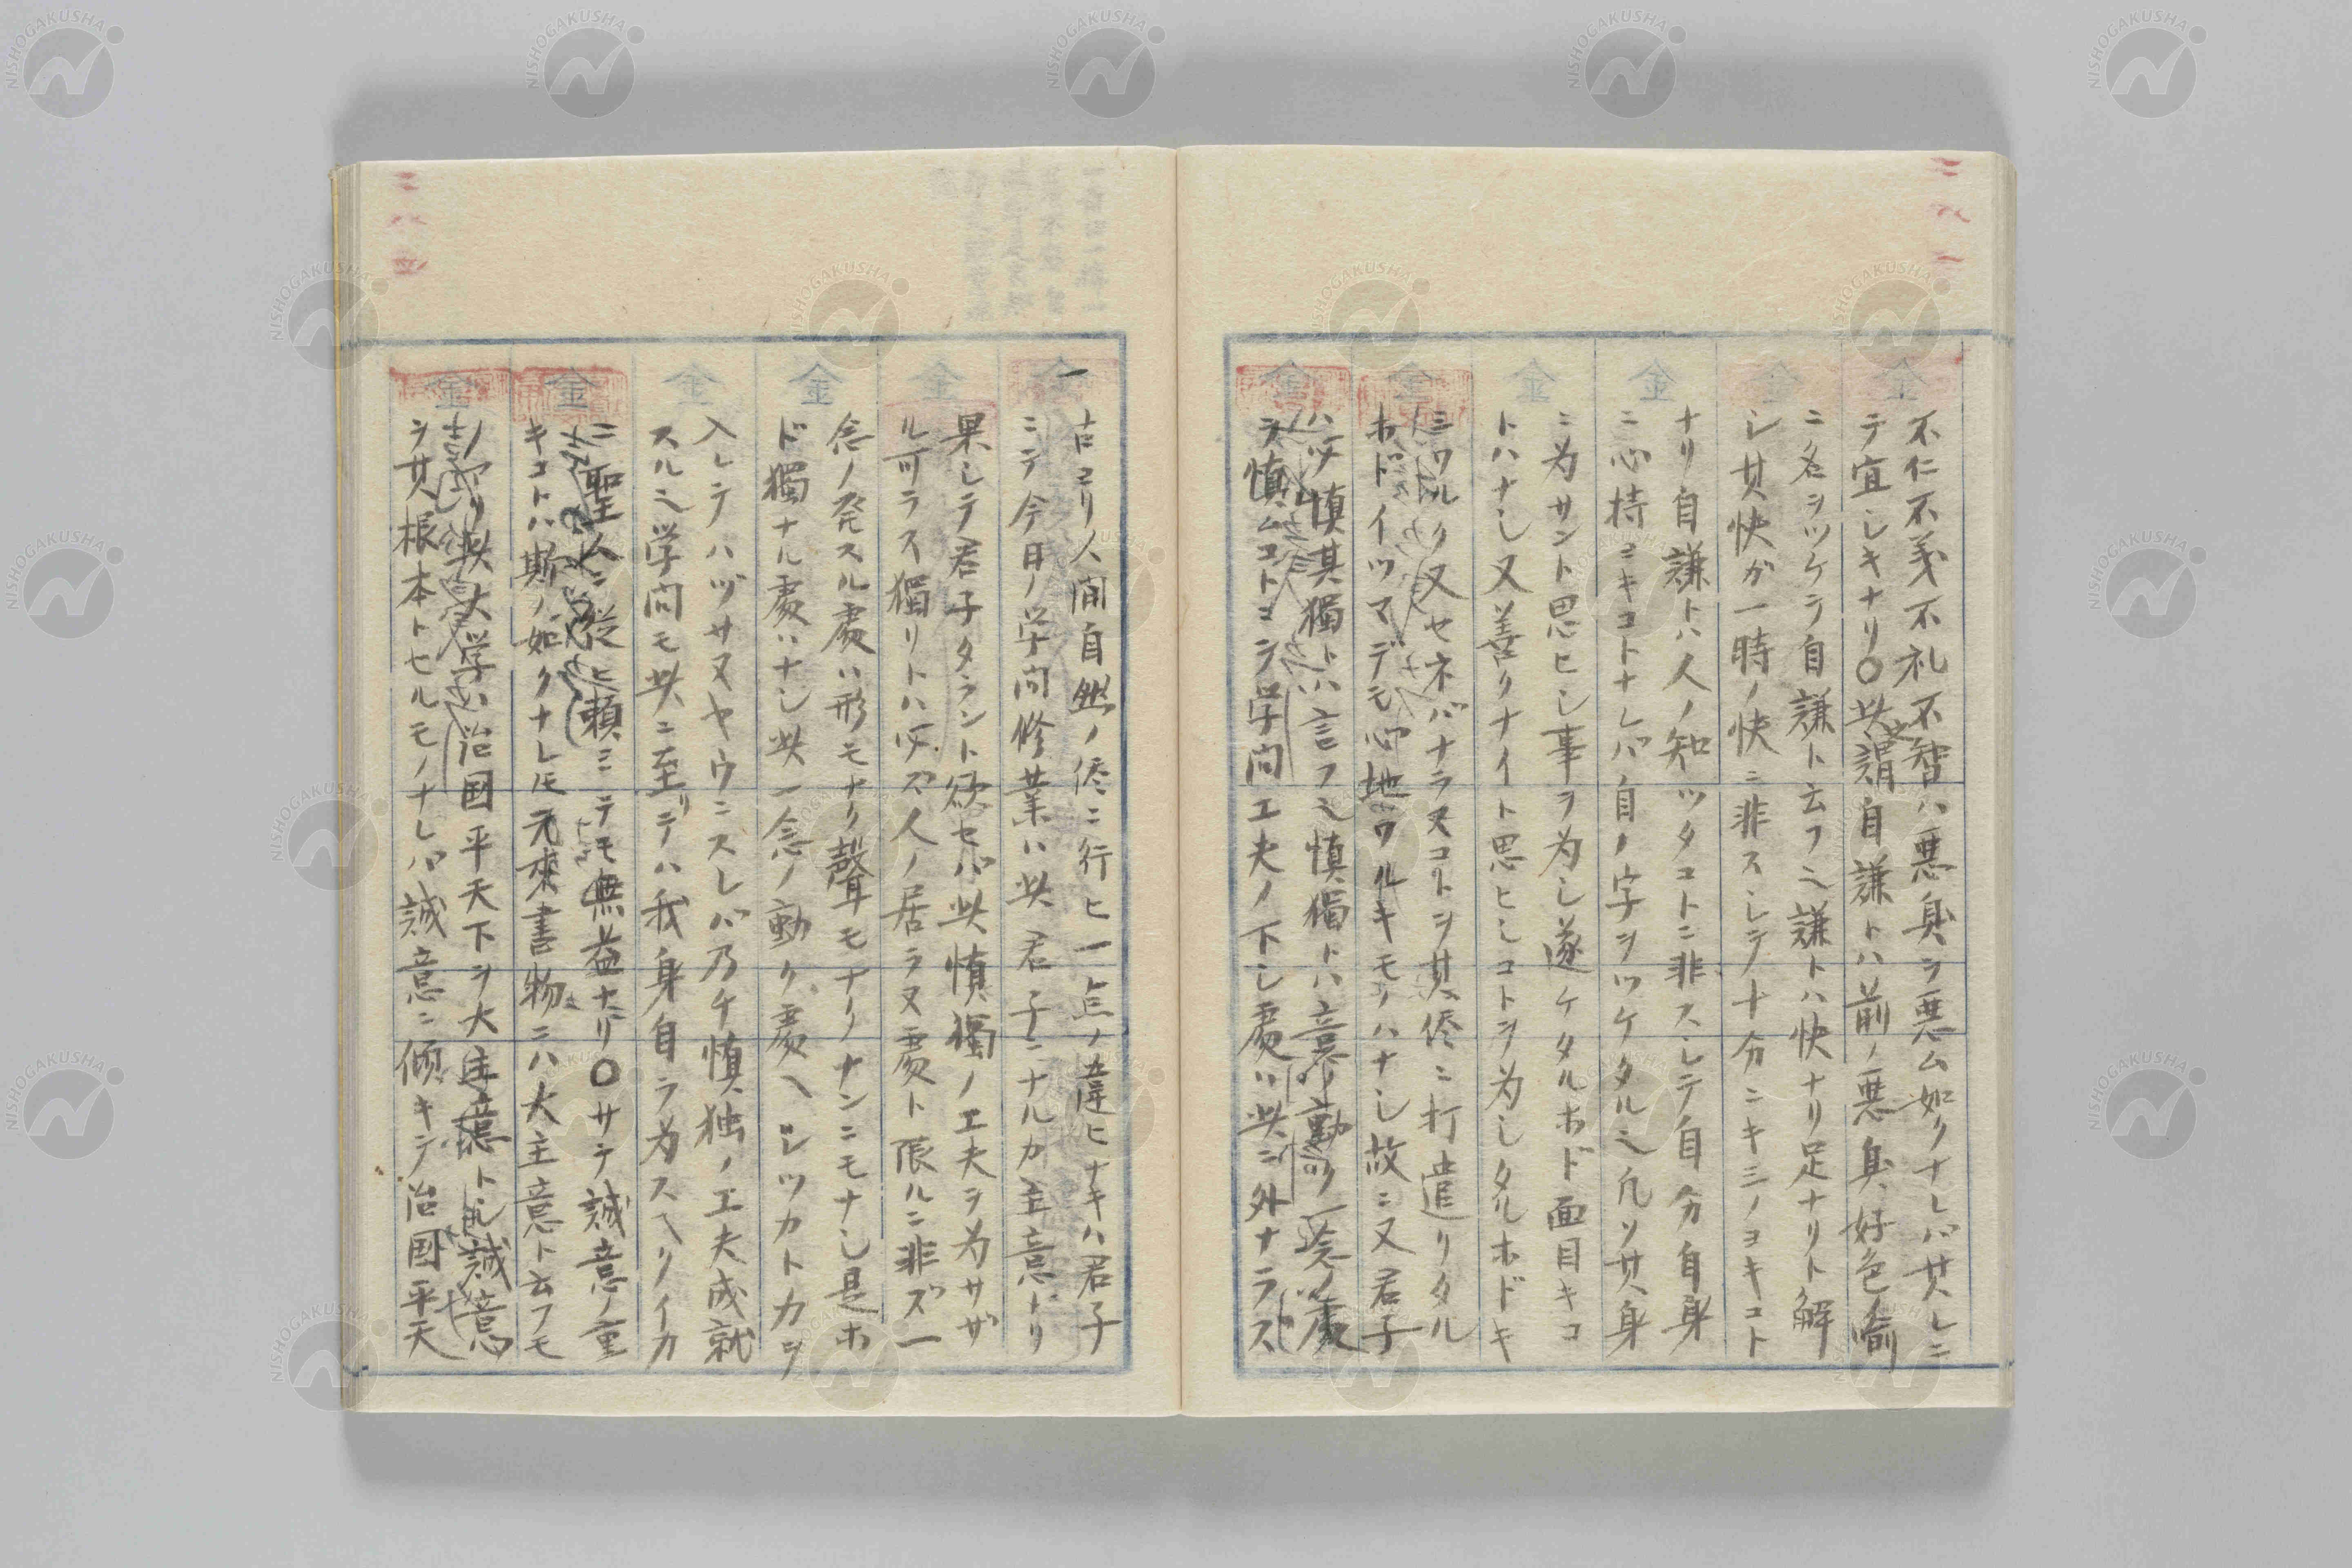 二八一
不仁不義不礼不智ハ悪臭ヲ悪ム如クナレバ其レニ
テ宜シキナリ〇此之謂自謙トハ前ノ悪臭好色ノ喩
ニ名ヲツケテ自謙ト云フ也謙トハ快ナリ足ナリト解
シ其快ガ一時ノ快ニ非スシテ十分ニキミノヨキコト
ナリ自謙トハ人ノ知ツタコトニ非スシテ自分自身
ニ心持ヨキコトナレバ自ノ字ヲツケタル也凡ソ其身
ニ為サント思ヒシ事ヲ為シ遂ケタルホド面目キコ
トハナシ又善クナイト思ヒシコトヲ為シタルホドキ
ミワルク又セネバナラヌコトヲ其侭ニ打遣リタル
ホドイツマデモ心地ワルキモノハナシ故ニ又君子
ハ必慎其獨トハ言フ也慎獨トハ意ノ動ク一念ノ處
ヲ慎ムコトヨシ学问工夫ノ下シ處ハ此ニ外ナラス
二八二
一
古ヨリ人间自然ノ侭ニ行ヒ一点ノ違ヒナキハ君子
ニテ今日ノ学问修業ハ此君子ニナルカ主意ナリ
果シテ君子タラント欲セバ此慎獨ノ工夫ヲ為サザ
ル可ラス獨リトハ必ズ人ノ居ラヌ處ト限ルニ非ズ一
念ノ発スル處ハ形モナク聲モナクナンニモナシ是ホ
ド獨ナル處ハナシ此一念ノ動ク處ヘシツカトカヲ
入レテハヅサヌヤウニスレバ乃チ慎独ノ工夫成就
スル也学问モ此ニ至リテハ我身自ラ為ス也クイカ
ニ聖人ニ従ヒ頼ミニテモ無益ナリ〇サテ誠意ノ重
キコトハ斯ノ如クナレ𪜈元來書物ニハ大主意ト云フモ
ノアリ此大学ハ治国平天下ヲ大主意トシ誠意
ヲ其根本トセルモノナレバ誠意ニ傾キテ治国平天